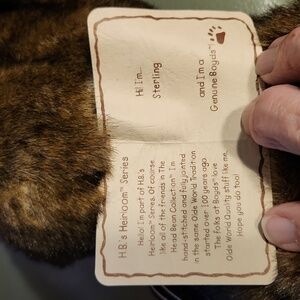 Hi! I'm...
Sterling
and I'm a
Genuine Boyds™
H.B.'s Heirloom™ Series
Hello! I'm part of H.B.'s
Heirloom™ Series. Of course,
like all of the friends in The
Head Bean Collection™ I'm
hand-stitched and fully jointed
in the same Olde World Tradition
started over 100 years ago.
The folks at Boyds™ love
Olde World Quality stuff like me.
Hope you do too!